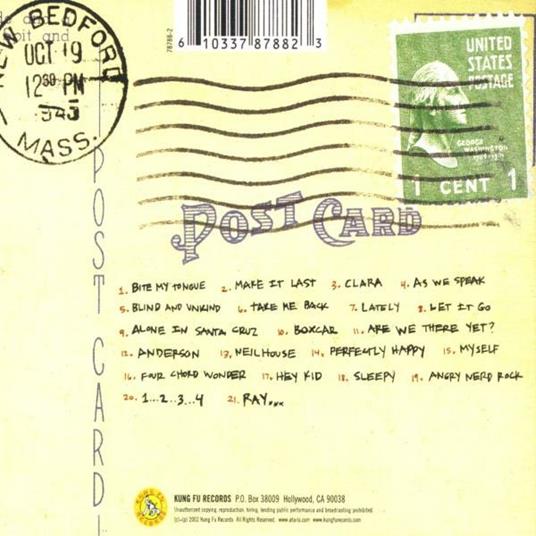 6 10337 87882 3
78786-2
NEW BEDFORD
OCT 19
12 30 PM
MASS.
UNITED
STATES
POSTAGE
GEORGE
WASHINGTON
1 CENT 1
POST CARD
POST CARD
1. BITE MY TONGUE 2. MAKE IT LAST 3. CLARA 4. AS WE SPEAK
5. BLIND AND UNKIND 6. TAKE ME BACK 7. LATELY 8. LET IT GO
9. ALONE IN SANTA CRUZ 10. BOXCAR 11. ARE WE THERE YET?
12. ANDERSON 13. NEILHOUSE 14. PERFECTLY HAPPY 15. MYSELF
16. FOUR CHORD WONDER 17. HEY KID 18. SLEEPY 19. ANGRY NERD ROCK
20. 1...2...3...4 21. RAY...
KUNG FU
RECORDS
KUNG FU RECORDS P.O. Box 38009 Hollywood, CA 90038
Unauthorized copying, reproduction, hiring, lending public performance and broadcasting prohibited.
(c)+(p) 2002 Kung Fu Records. All Rights Reserved. www.ataris.com www.kungfurecords.com